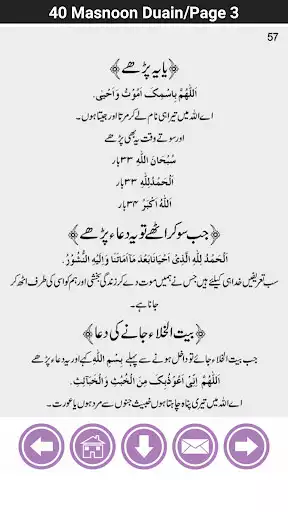 40 Masnoon Duain/Page 3
57
﴿یا یہ پڑھے﴾
اَللّٰهُمَّ بِاسْمِکَ اَمُوْتُ وَاَحْیٰی.
اے اللہ میں تیرا ہی نام لے کر مرتا اور جیتا ہوں۔
اور سوتے وقت یہ بھی پڑھے
سُبْحَانَ اللّٰهِ ۳۳ بار
اَلْحَمْدُلِلّٰهِ ۳۳ بار
اَللّٰهُ اَکْبَرُ ۳۴ بار
﴿جب سو کر اٹھے تو یہ دعاء پڑھے﴾
اَلْحَمْدُ لِلّٰهِ الَّذِیْ اَحْیَانَا بَعْدَ مَآ اَمَاتَنَا وَاِلَیْهِ النُّشُوْرُ.
سب تعریفیں خدا ہی کیلئے ہیں جس نے ہمیں موت دے کر زندگی بخشی اور ہم کو اسی کی طرف اٹھ کر
جانا ہے۔
﴿بیت الخلاء جانے کی دعا﴾
جب بیت الخلاء جائے تو داخل ہونے سے پہلے بِسْمِ اللّٰهِ کہے اور یہ دعاء پڑھے
اَللّٰهُمَّ اِنِّیْ اَعُوْذُبِکَ مِنَ الْخُبُثِ وَالْخَبَائِثِ.
اے اللہ میں تیری پناہ چاہتا ہوں خبیث جنوں سے مرد ہوں یا عورت۔